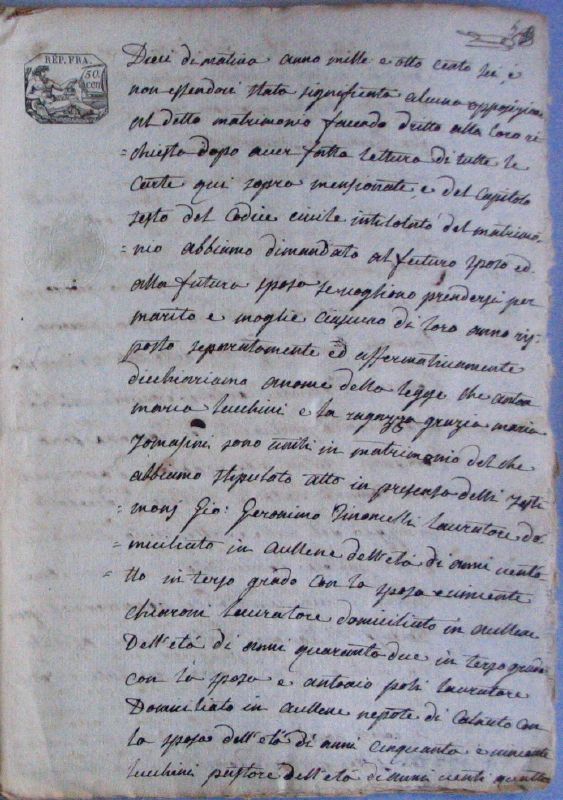 RÉP. FRA.
50.
Dieci di matina anno mille e otto cento sei, e
non essendoci stata significata alcuna opposizione
al detto matrimonio facendo dritto alla loro ri
= chiesta dopo aver fatta lettura di tutte le
carte qui sopra mensionate, e del Capitolo
sesto del Codice civile intitolato del matrimo
= nio abbiamo dimandato al futuro sposo ed
alla futura sposa se vogliono prendersi per
marito e moglie ciascuno di loro anno ris
posto separatamente ed affermativamente
dicchiariamo a nome della legge che anton
maria lucchini e la ragazza grazia maria
Tomasini sono uniti in matrimonio del che
abbiamo stipulato atto in presenza delli Testi
= monj Gio: Geronimo lauratore do
= miciliato in aullene dell'età di anni vento
= tto in terzo grado con la sposa
lauratore domiciliato in aullene
Dell'età di anni quaranta due in terzo grado
con la sposa e antonio poli lauratore
Domiciliato in aullene nepote di con
la sposa dell'età di anni cinquanta e
lucchini pastore dell'età di anni venti quattro